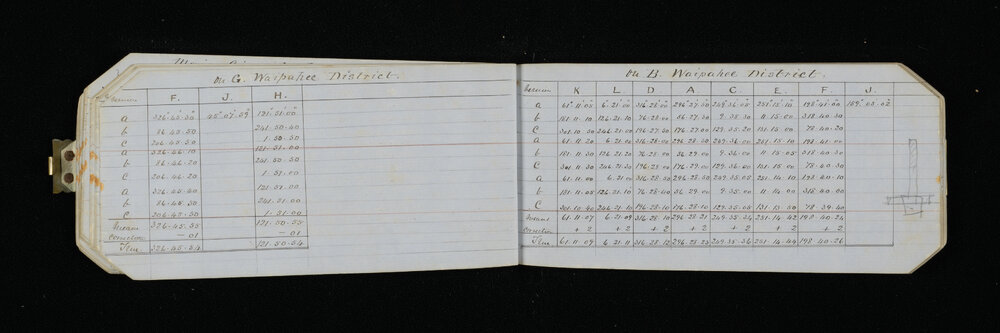 on G. Waipahee District.
F. J. H.
a 326.45.30 45.07.09 121.51.00
b 86.45.50 241.50.40
c 206.45.50 1.50.50
a 326.46.10 121.51.00
b 86.46.20 241.50.50
c 206.46.20 1.51.00
a 326.45.40 121.51.00
b 86.45.50 241.51.00
c 206.45.50 1.51.00
Mean 326.45.55 121.50.55
Correction — 01 — 01
True 326.45.54 121.50.54
on B. Waipahee District.
K L. D. A. C. E. F. J.
a 61.11.00 6.21.00 316.28.00 249.36.00 251.15.10 198.41.00 169.05.02
b 181.11.10 126.21.10 76.28.00 56.27.50 9.35.50 11.15.00 318.40.30
c 301.10.50 246.21.00 196.27.50 176.27.00 129.35.20 131.15.00 78.40.20
a 61.11.20 6.21.00 316.28.00 296.28.50 249.36.00 251.15.10 198.41.00
b 181.11.30 126.21.20 76.28.00 56.29.00 9.36.00 11.15.05 318.40.30
c 301.11.30 246.21.30 196.28.10 176.29.00 129.36.00 131.15.00 78.40.30
a 61.11.00 6.21.00 316.28.30 296.28.50 249.35.05 251.14.50 198.40.10
b 181.11.05 126.21.10 76.28.40 56.29.00 9.35.00 11.14.00 318.40.00
c 301.10.40 246.21.10 196.28.10 176.28.10 129.35.05 131.13.50 78.39.40
Mean 61.11.07 6.21.09 316.28.10 296.28.21 249.35.34 251.14.42 198.40.24
Correction + 2 + 2 + 2 + 2 + 2 + 2 + 2
True 61.11.09 6.21.11 316.28.12 296.28.23 249.35.36 251.14.44 198.40.26